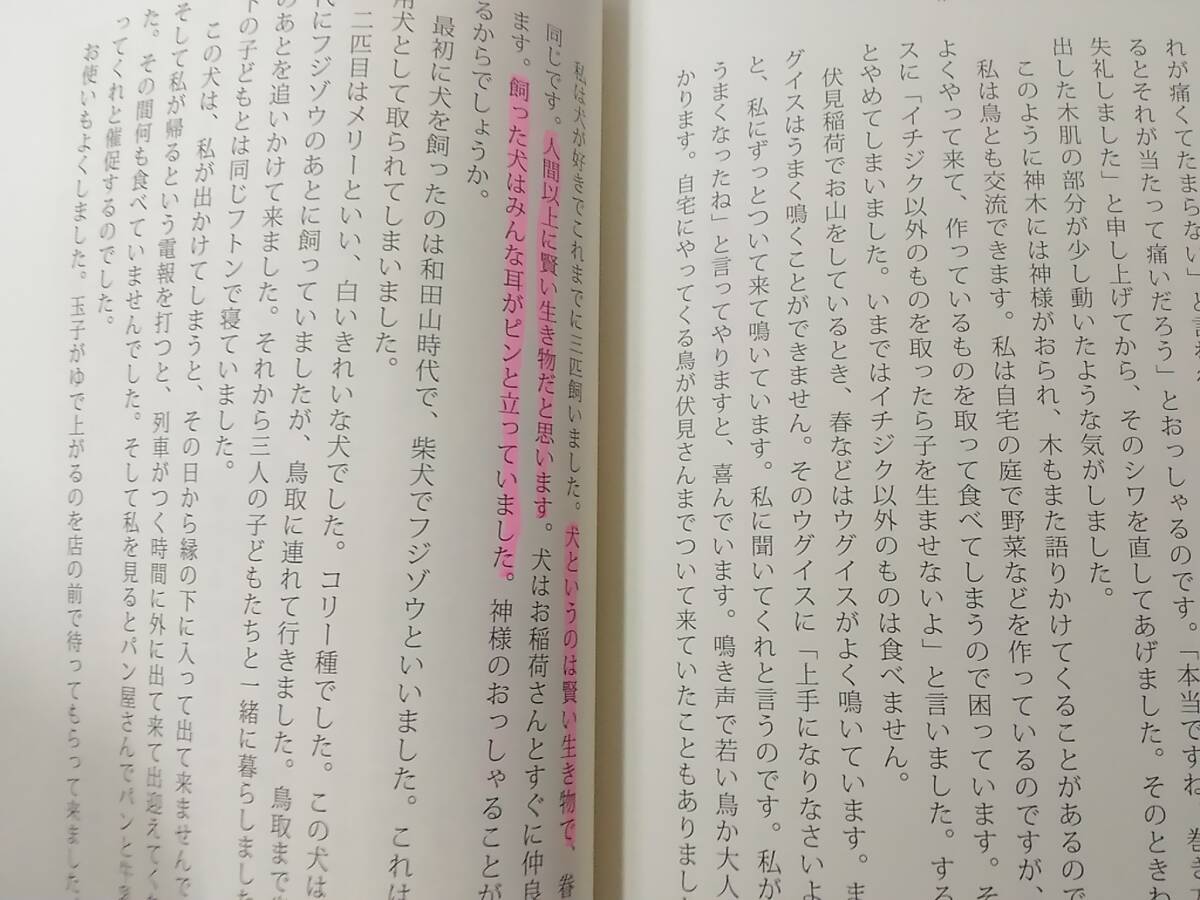 れが痛くてたまらない」と言われ
るとそれが当たって痛いだろう」とおっしゃるのです。「本当ですね
失礼しました」と申し上げてから、そのシワを直してあげました。そのときわ
出した木肌の部分が少し動いたような気がしました。
このように神木には神様がおられ、木もまた語りかけてくることがあるので
私は鳥とも交流できます。私は自宅の庭で野菜などを作っているのですが、
よくやって来て、作っているものを取って食べてしまうので困っています。そ
スに「イチジク以外のものを取ったら子を生ませないよ」と言いました。する
とやめてしまいました。いまではイチジク以外のものは食べません。
伏見稲荷でお山をしているとき、春などはウグイスがよく鳴いています。ま
グイスはうまく鳴くことができません。そのウグイスに「上手になりなさいよ
と、私にずっとついて来て鳴いています。私に聞いてくれと言うのです。私が
うまくなったね」と言ってやりますと、喜んでいます。鳴き声で若い鳥か大人
かります。自宅にやってくる鳥が伏見さんまでついて来ていたこともありまし
私は犬が好きでこれまでに三匹飼いました。犬というのは賢い生き物で、眷
同じです。人間以上に賢い生き物だと思います。犬はお稲荷さんとすぐに仲良
ます。飼った犬はみんな耳がピンと立っていました。神様のおっしゃることが
るからでしょうか。
最初に犬を飼ったのは和田山時代で、柴犬でフジゾウといいました。これは
用犬として取られてしまいました。
二匹目はメリーといい、白いきれいな犬でした。コリー種でした。この犬は
にフジゾウのあとに飼っていましたが、鳥取に連れて行きました。鳥取まで
のあとを追いかけて来ました。それから三人の子どもたちと一緒に暮らしました
下の子どもとは同じフトンで寝ていました。
この犬は、私が出かけてしまうと、その日から縁の下に入って出て来ませんで
そして私が帰るという電報を打つと、列車がつく時間に外に出て来て出迎えてく
た。その間何も食べていませんでした。そして私を見るとパン屋さんでパンと牛
ってくれと催促するのでした。
お使いもよくしました。玉子がゆで上がるのを店の前で待ってもらって来ました